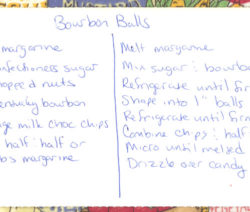 Bourbon Balls
margarine
confectioners sugar
chopped nuts
kentucky bourbon
milk choc chips
half : half or
margarine
Melt margarine
Mix sugar : bourbo
Refrigerate until fir
Shape into 1" balls
Refrigerate until firm
Combine chips : half
Micro until melted
Drizzle over candy